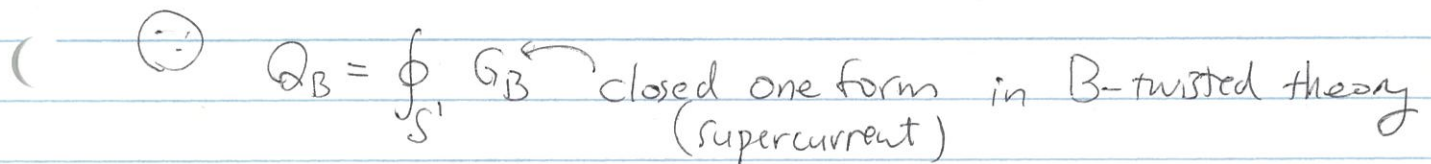 ∵ Q_B = ∮_{S¹} G_B closed one form in B-twisted theory
(supercurrent)